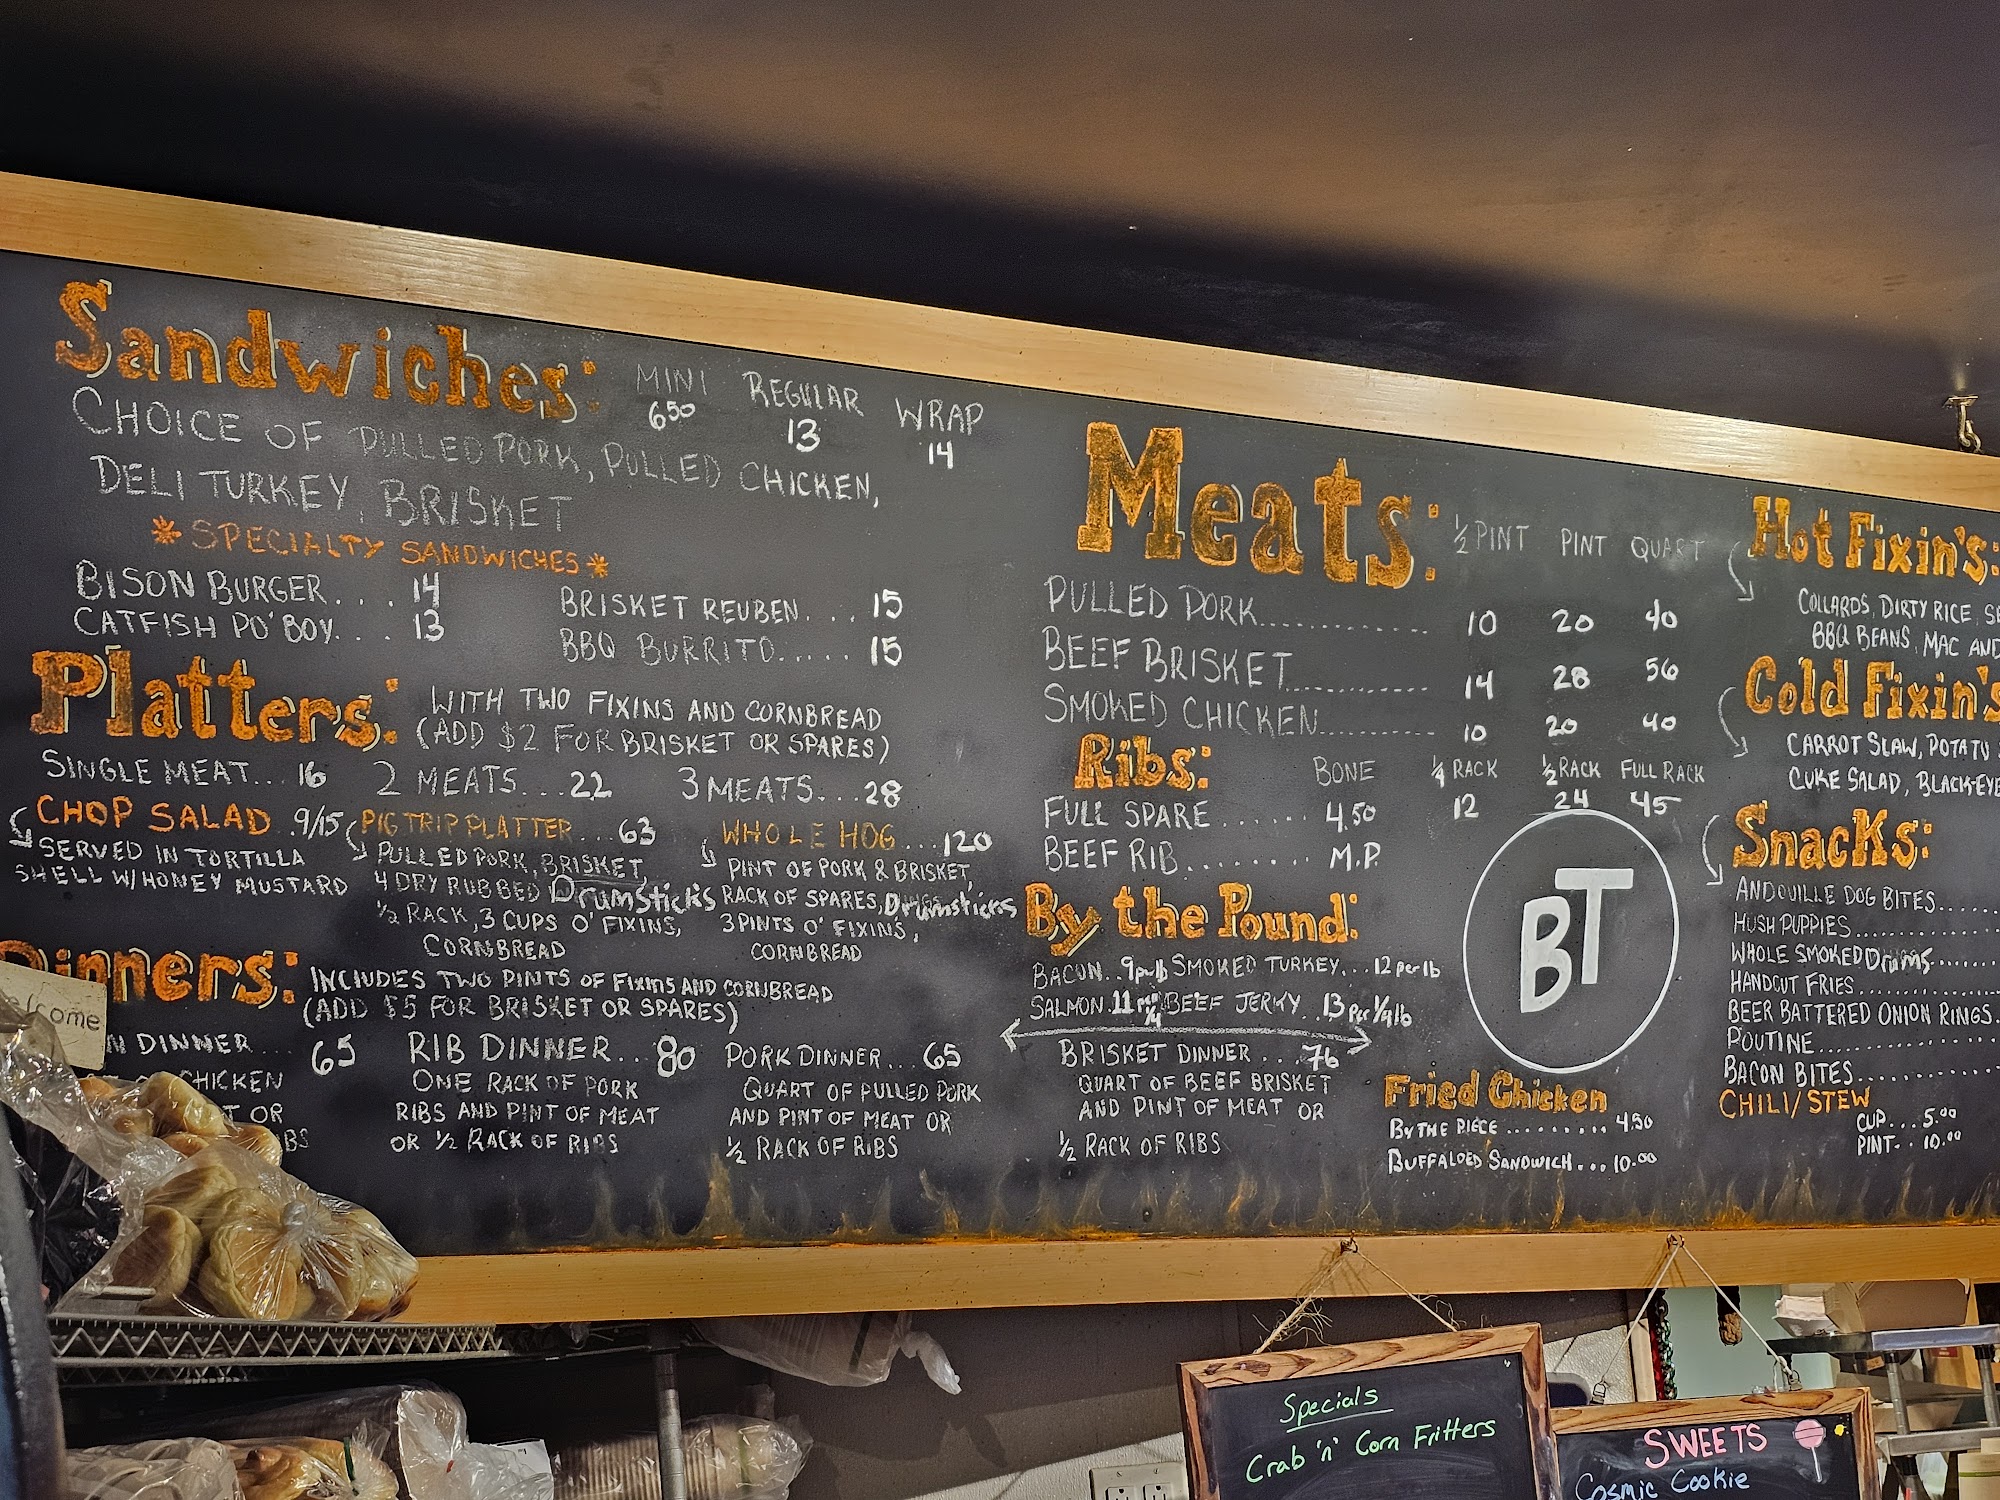 Sandwiches:
MINI REGULAR WRAP
6⁵⁰ 13 14
CHOICE OF PULLED PORK, PULLED CHICKEN,
DELI TURKEY, BRISKET
*SPECIALTY SANDWICHES*
BISON BURGER... 14
CATFISH PO'BOY... 13
BRISKET REUBEN... 15
BBQ BURRITO..... 15
Platters:
WITH TWO FIXINS AND CORNBREAD
(ADD $2 FOR BRISKET OR SPARES)
SINGLE MEAT... 16 2 MEATS...22 3 MEATS...28
CHOP SALAD .9/15
SERVED IN TORTILLA
SHELL W/HONEY MUSTARD
PIG TRIP PLATTER...63
PULLED PORK, BRISKET,
4 DRY RUBBED Drumsticks
½ RACK, 3 CUPS O' FIXINS,
CORNBREAD
WHOLE HOG...120
PINT OF PORK & BRISKET,
RACK OF SPARES, Drumsticks
3 PINTS O' FIXINS,
CORNBREAD
Dinners:
INCLUDES TWO PINTS OF FIXINS AND CORNBREAD
(ADD $5 FOR BRISKET OR SPARES)
N DINNER... 65
CHICKEN
T OR
BS
RIB DINNER...80
ONE RACK OF PORK
RIBS AND PINT OF MEAT
OR ½ RACK OF RIBS
PORK DINNER...65
QUART OF PULLED PORK
AND PINT OF MEAT OR
½ RACK OF RIBS
Meats:
½ PINT PINT QUART
PULLED PORK................ 10 20 40
BEEF BRISKET............... 14 28 56
SMOKED CHICKEN............. 10 20 40
Ribs:
BONE ¼ RACK ½ RACK FULL RACK
FULL SPARE....... 4.50 12 24 45
BEEF RIB........ M.P.
By the Pound:
BACON..9 per lb SMOKED TURKEY...12 per lb
SALMON.11 per ¼ BEEF JERKY..13 per ¼ lb
BRISKET DINNER...76
QUART OF BEEF BRISKET
AND PINT OF MEAT OR
½ RACK OF RIBS
BT
Fried Chicken
BY THE PIECE.......... 4.50
BUFFALOED SANDWICH...10.00
Hot Fixin's:
COLLARDS, DIRTY RICE,
BBQ BEANS, MAC AND
Cold Fixin's
CARROT SLAW, POTATO
CUKE SALAD, BLACK-EYE
Snacks:
ANDOUILLE DOG BITES......
HUSH PUPPIES.............
WHOLE SMOKED Drums......
HANDCUT FRIES............
BEER BATTERED ONION RINGS.
POUTINE..................
BACON BITES..............
CHILI/STEW
CUP...5.00
PINT..10.00
Specials
Crab 'n' Corn Fritters
SWEETS
Cosmic Cookie